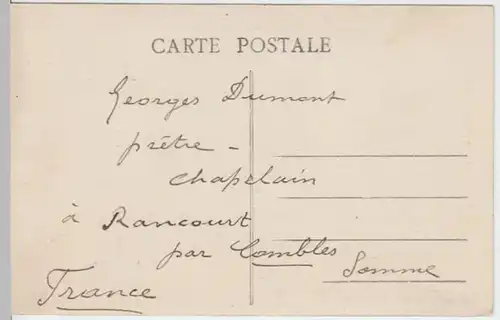 CARTE POSTALE
Georges Dumont
prêtre -
chapelain
à Rancourt
par Combles
Somme
France